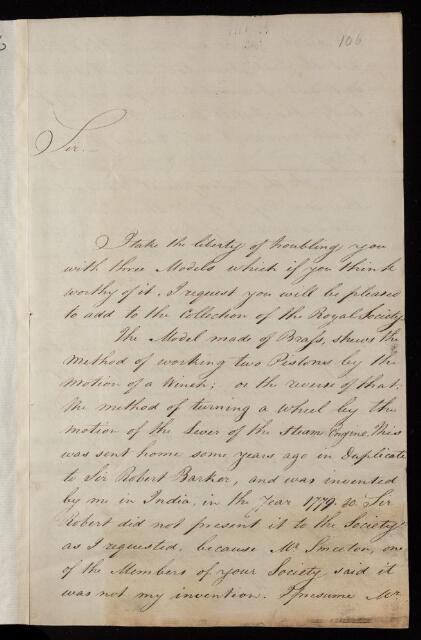 106
Sir.
I take the liberty of troubling you
with three Models which if you think
worthy of it, I request you will be pleased
to add to the Collection of the Royal Society.
The Model made of Brass, shews the
Method of working two Pistons by the
Motion of a Winch; or the reverse of that,
the method of turning a wheel by the
motion of the Lever of the Steam Engine, This
was sent home some years ago in Duplicate
to Sir Robert Barker, and was invented
by me in India, in the Year 1779. Sir
Robert did not present it to the Society
as I requested, because Mr. Smeeton, one
of the Members of your Society said it
was not my invention. I presume Mr.